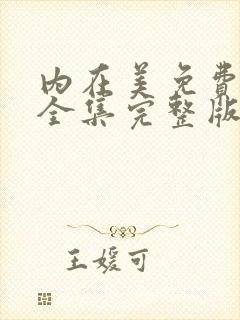 内在美免费
全集完整版
王媛可